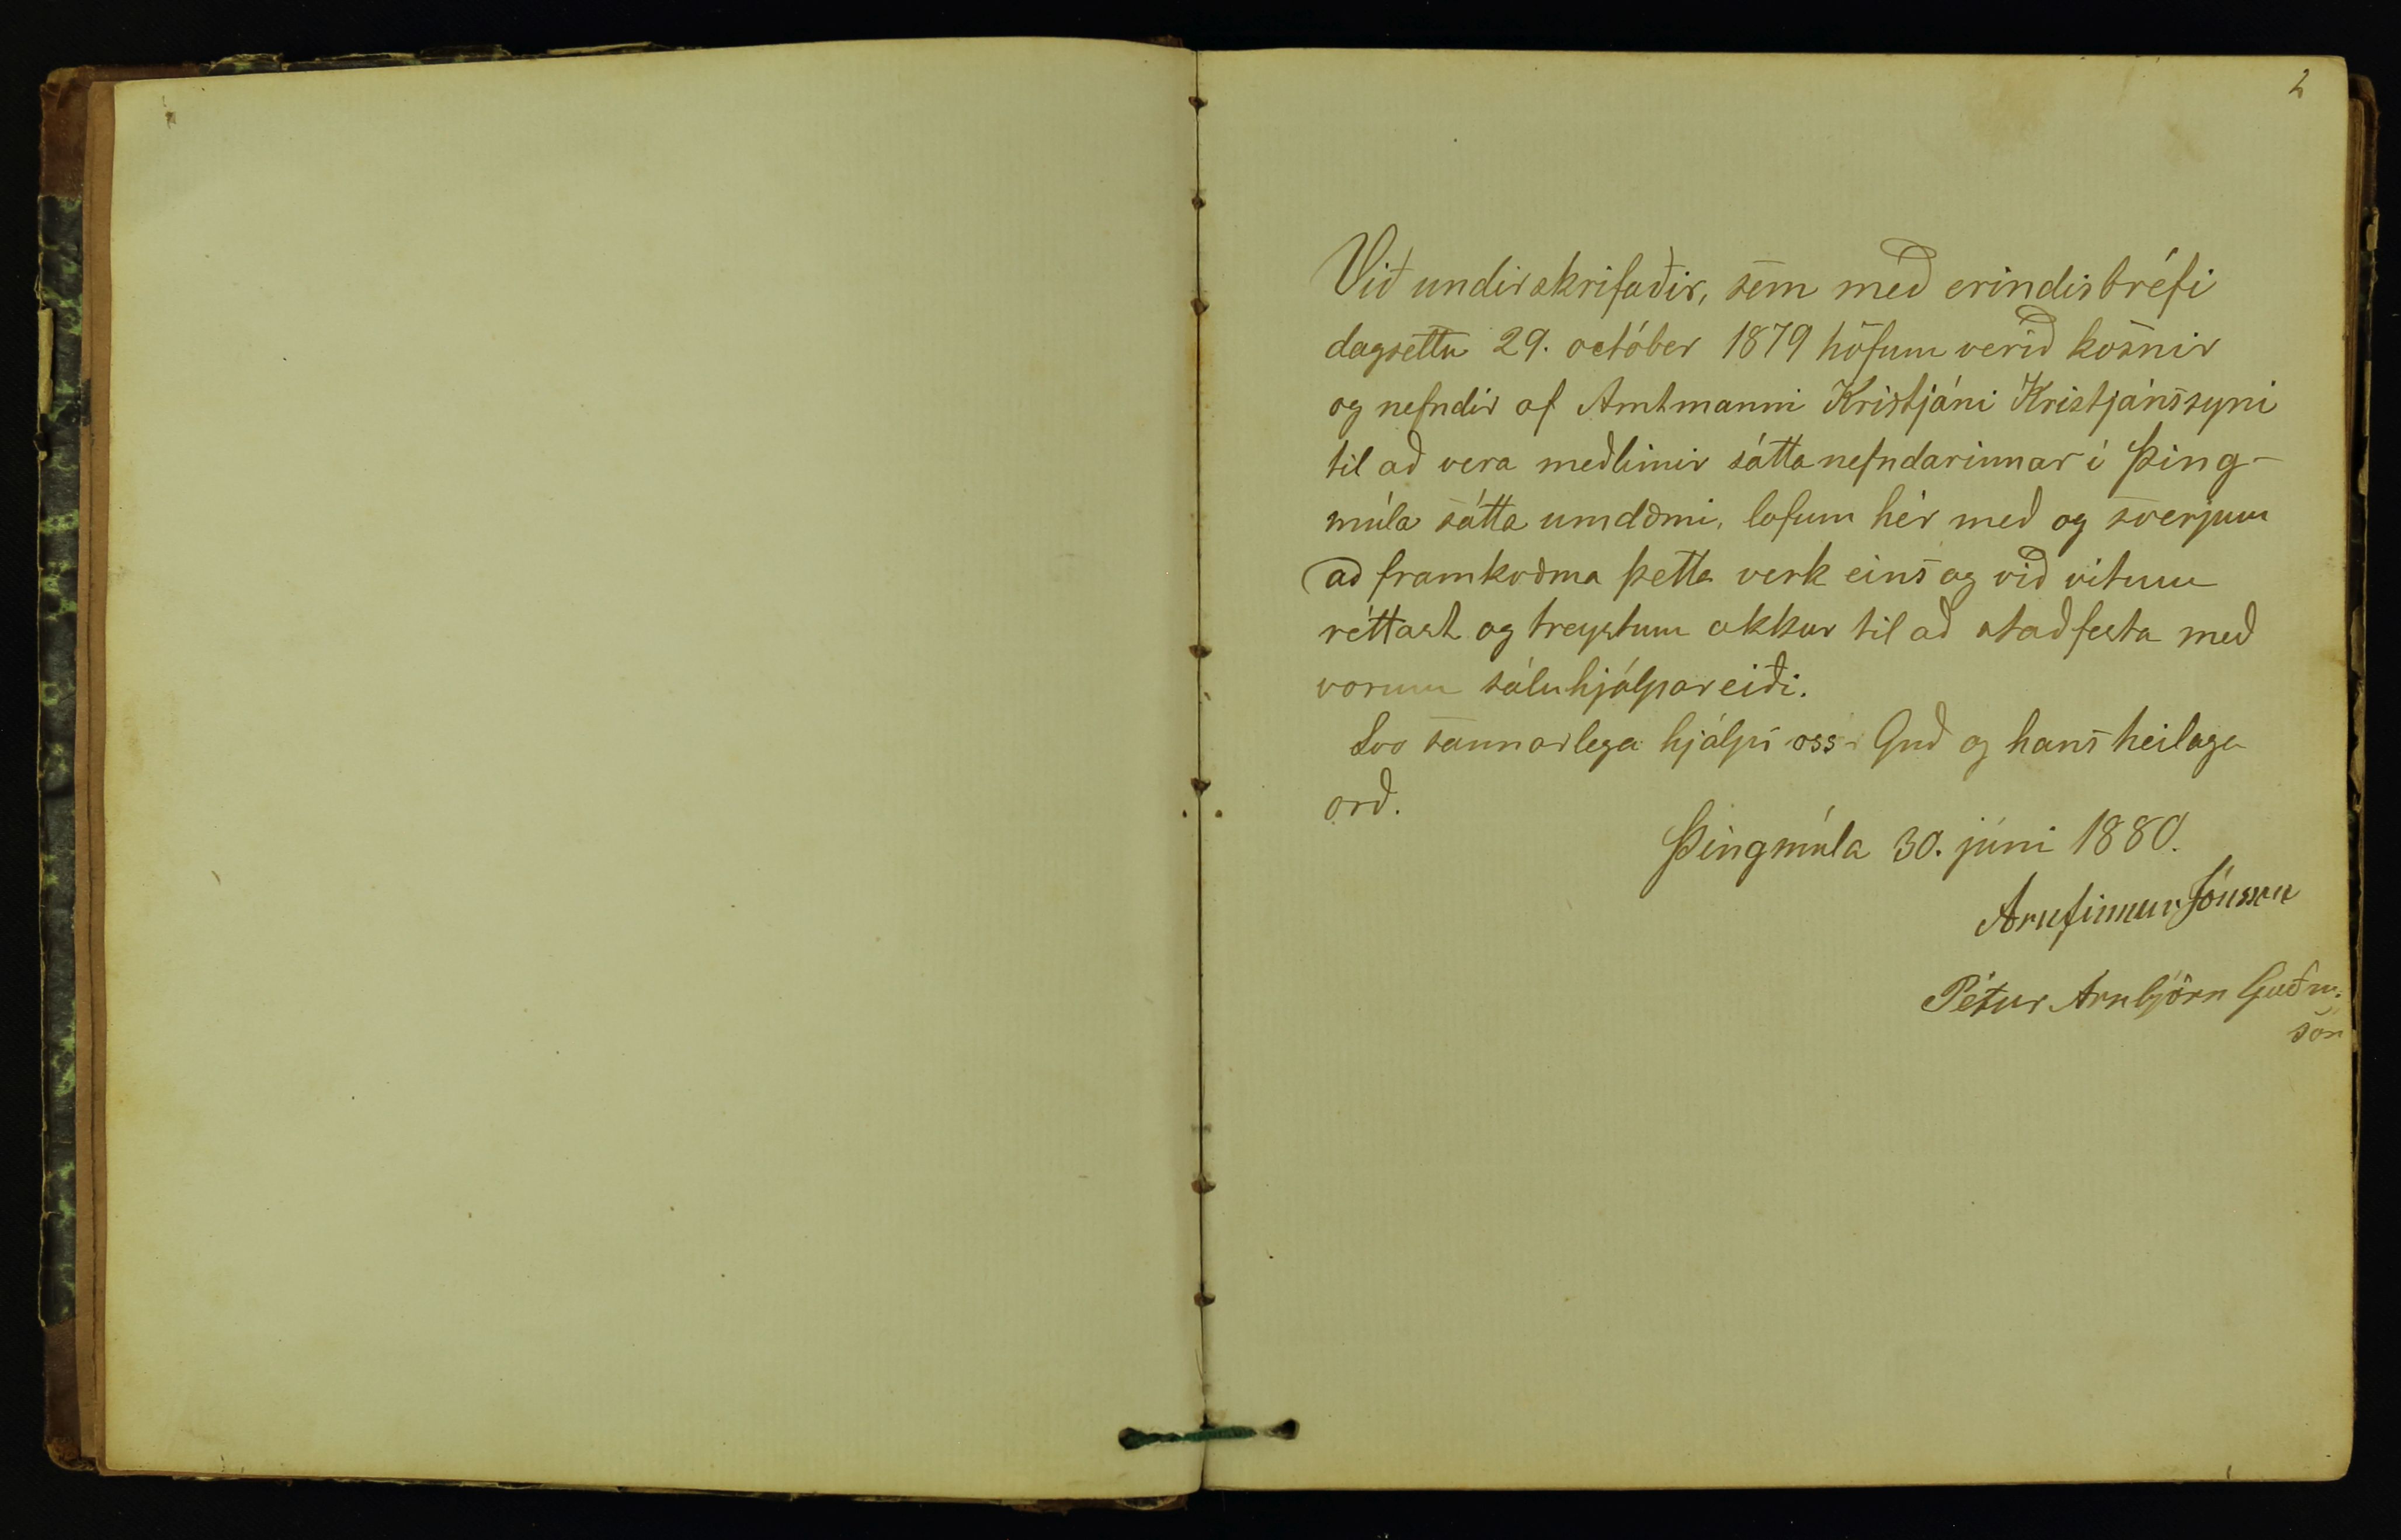 2
Við undirskrifaðir, sem með erindisbréfi
dagsettu 29. octóber 1879 höfum verið kosnir
og nefndir af Amtmanni Kristjáni Kristjánssyni
til að vera meðlimir sáttanefndarinnar í Þing-
múla sátta umdæmi, lofum hér með og sverjum
að framkvæma þetta verk eins og við vitum
réttast og treystum okkur til að staðfesta með
vorum sáluhjálpareiði.
Svo sannarlega hjálpi oss Guð og hans heilaga
orð.
Þingmúla 30. júni 1880.
Arnfinnur Jónsson
Pétur Arnbjörn Guðm.
son